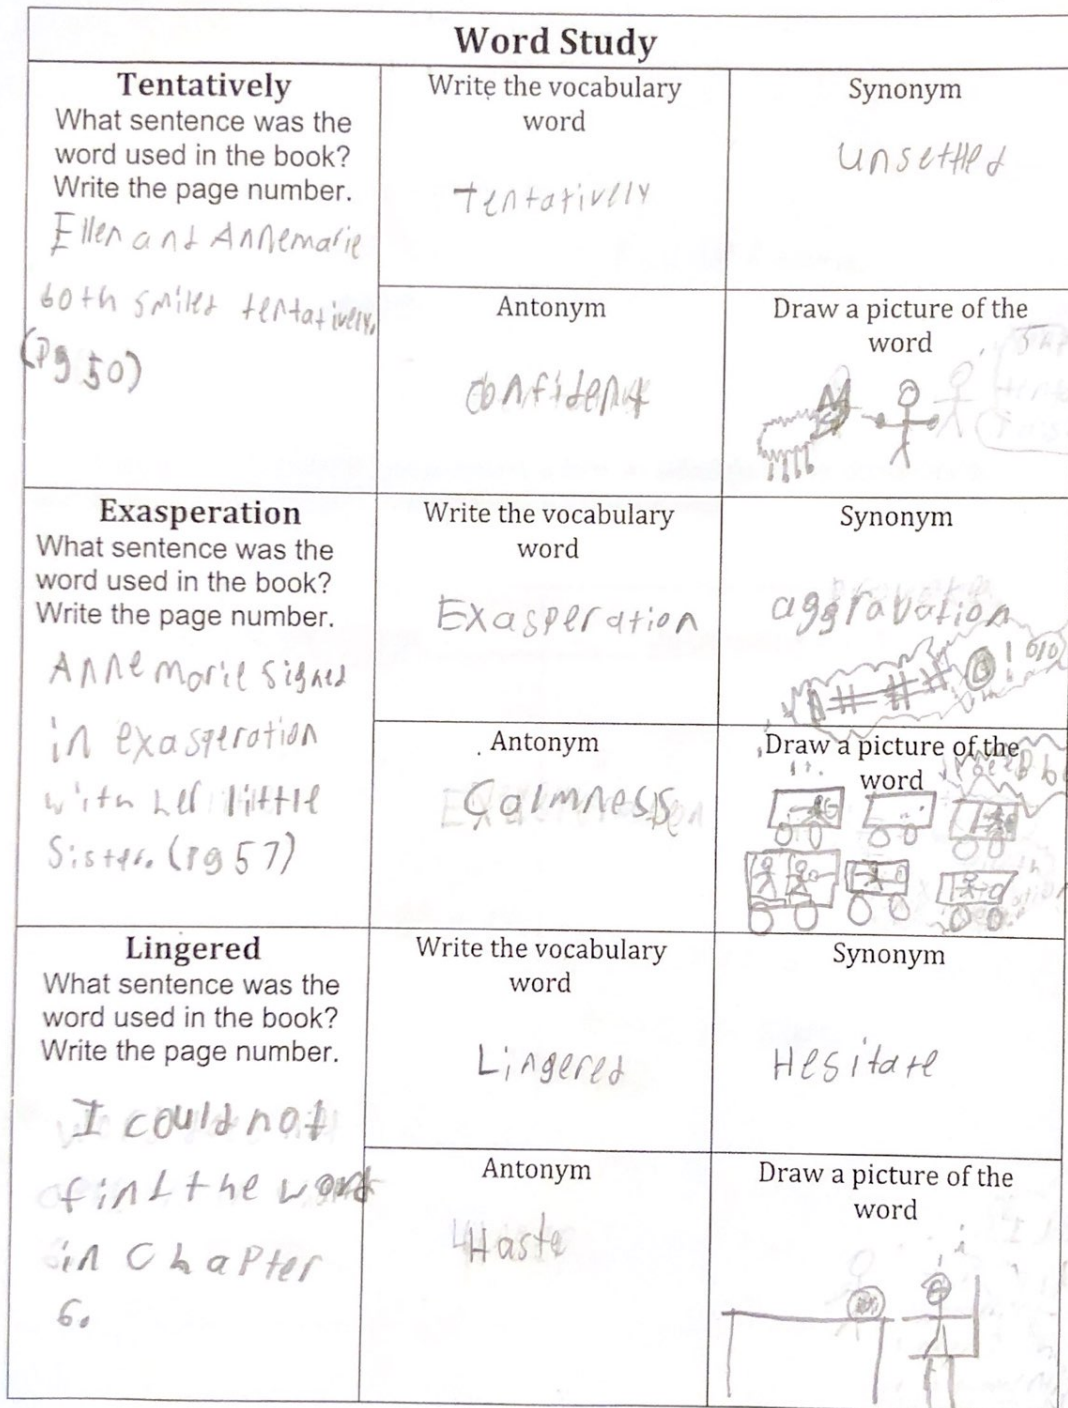 Word Study
Tentatively
What sentence was the
word used in the book?
Write the page number.
Ellen and Annemarie
both smiled tentatively.
(Pg 50)
Write the vocabulary
word
tentatively
Synonym
unsettled
Antonym
confident
Draw a picture of the
word
Exasperation
What sentence was the
word used in the book?
Write the page number.
Annemarie signed
in exasperation
with her little
Sister. (Pg 57)
Write the vocabulary
word
Exasperation
Synonym
aggravation
Antonym
Calmness
Draw a picture of the
word
Lingered
What sentence was the
word used in the book?
Write the page number.
I could not
find the word
in Chapter
6.
Write the vocabulary
word
Lingered
Synonym
Hesitate
Antonym
Haste
Draw a picture of the
word